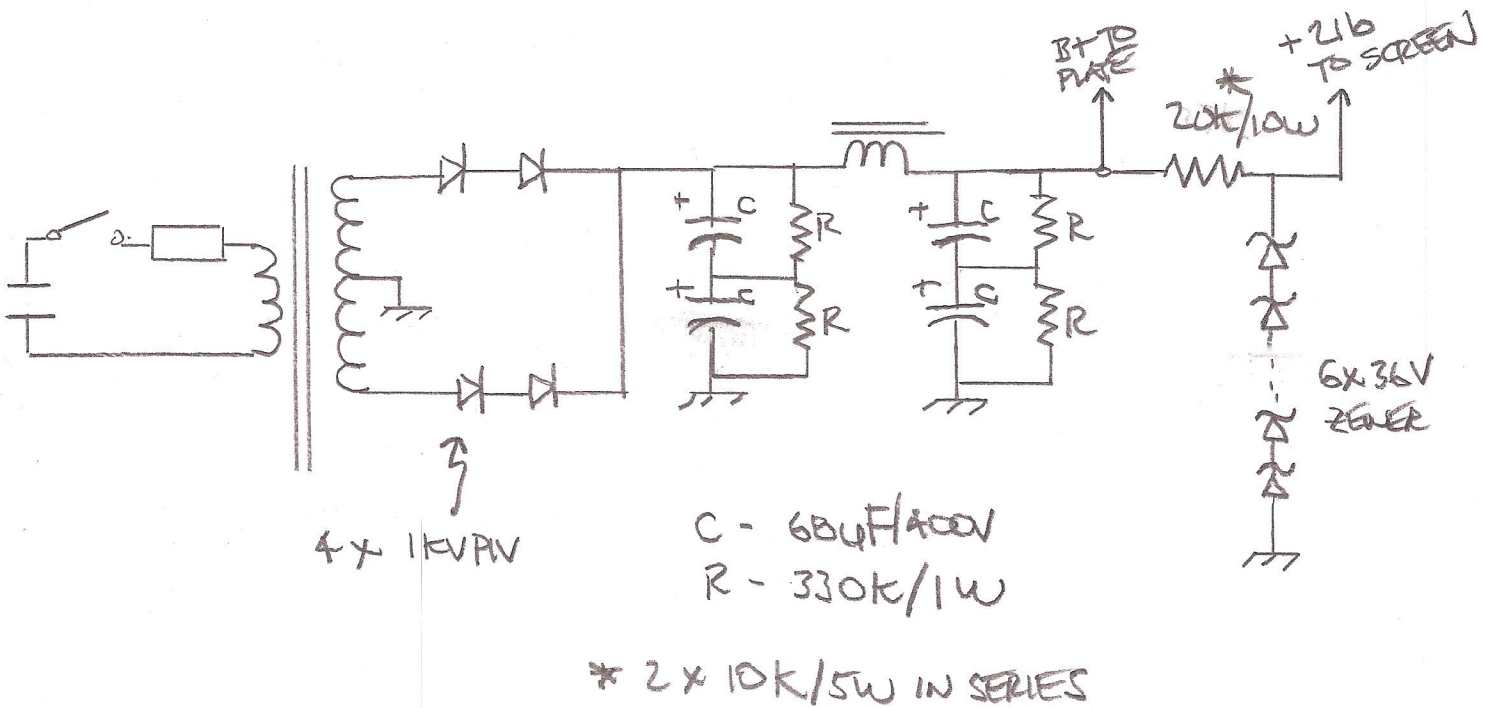 B+ TO
PLATE
+216
TO SCREEN
*
20K/10W
+ C
R
+ C
R
+ C
R
+ C
R
6X36V
ZENER
4 x 1KVPIV
C - 68uF/400V
R - 330K/1W
* 2 X 10K/5W IN SERIES